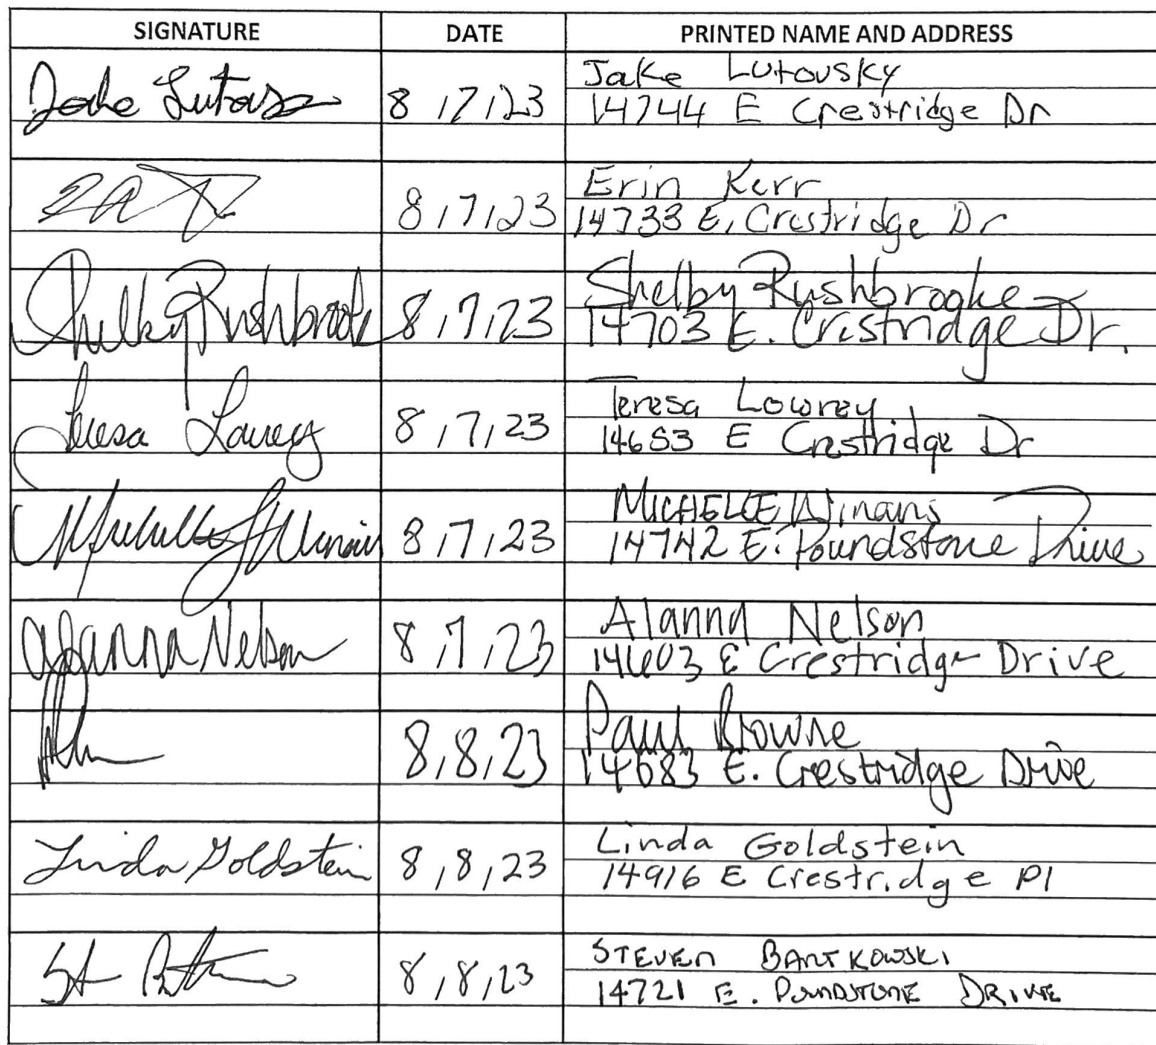 SIGNATURE DATE PRINTED NAME AND ADDRESS
Jake Lutovsky
8/7/23 14744 E Crestridge Dr
Erin Kerr
8/7/23 14733 E. Crestridge Dr
Shelby Rushbrooke Shelby Rushbrooke
8/7/23 14703 E. Crestridge Dr.
Teresa Lowrey Teresa Lowrey
8/7/23 14653 E Crestridge Dr
Michelle Winans MICHELLE Winans
8/7/23 14742 E. Poundstone Drive
Alanna Nelson Alanna Nelson
8/7/23 14603 E Crestridge Drive
Paul Browne
8/8/23 14683 E. Crestridge Drive
Linda Goldstein Linda Goldstein
8/8/23 14916 E Crestridge Pl
STEVEN BARTKOWSKI
8/8/23 14721 E. POUNDSTONE DRIVE